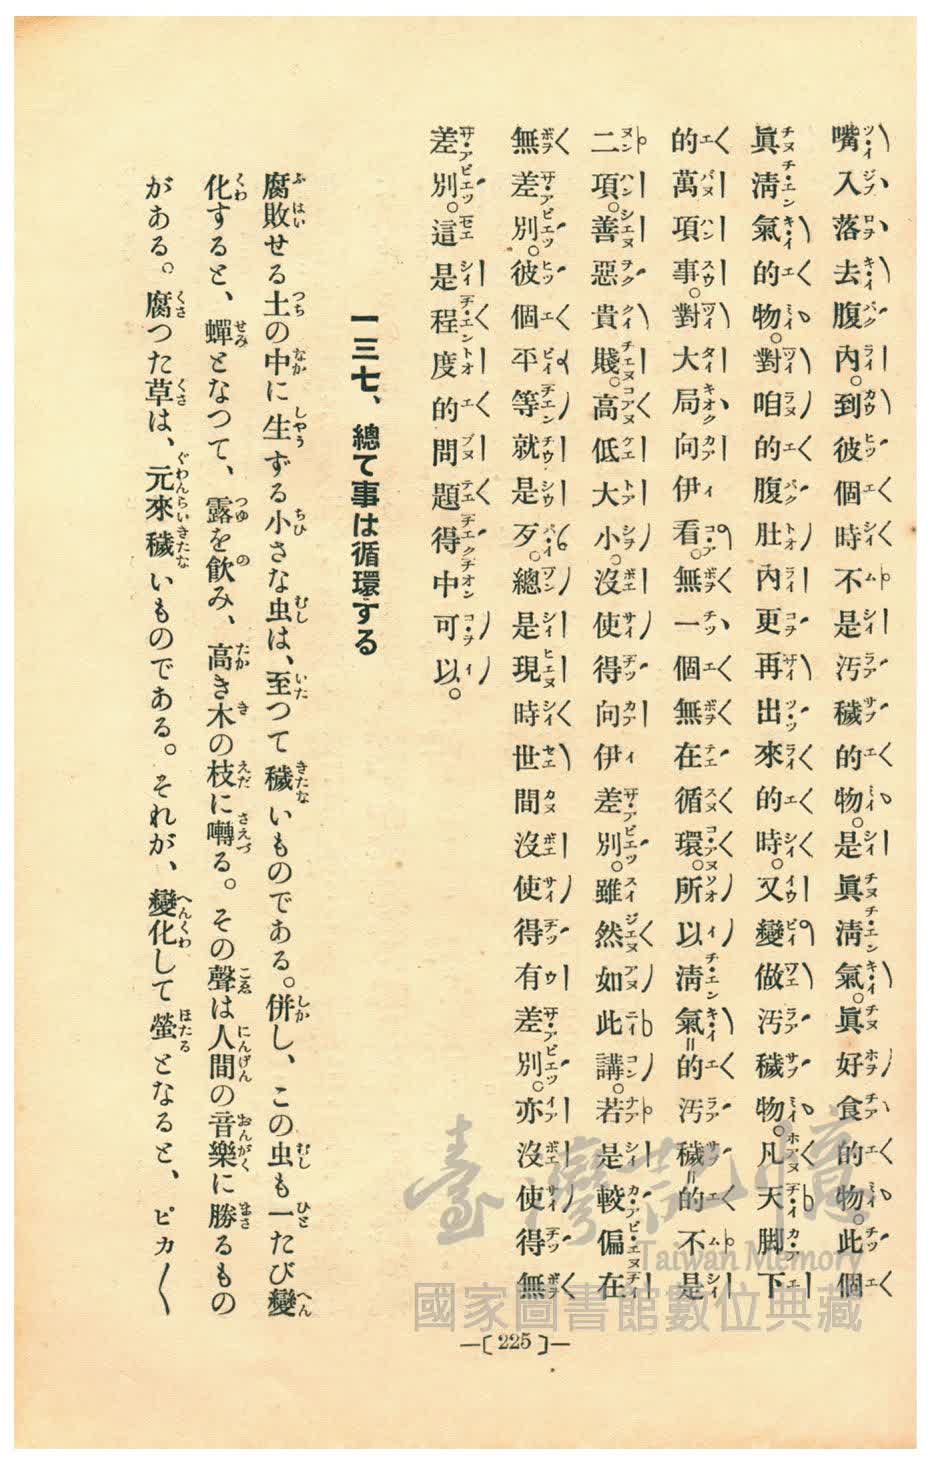 嘴入落去腹內。到彼個時不是汚穢的物。是眞淸氣。眞好食的物。此個
眞淸氣的物。對咱的腹肚內更再出來的時。又變做汚穢物。凡天脚下
的萬項事。對大局向伊看。無一個無在循環。所以淸氣=的汚穢=的不是
二項。善惡貴賤。高低大小。沒使得向伊差別。雖然如此講。若是較偏在
無差別。彼個平等就是歹。總是現時世間沒使得有差別。亦沒使得無
差別。這是程度的問題得中可以。
一三七、總て事は循環する
腐敗せる土の中に生ずる小さな虫は、至つて穢いものである。併し、この虫も一たび變
化すると、蟬となつて、露を飮み、高き木の枝に囀る。その聲は人間の音樂に勝るもの
がある。腐つた草は、元來穢いものである。それが、變化して螢となると、ピカ〱
—〔225〕—
臺灣記憶
Taiwan Memory
國家圖書館數位典藏